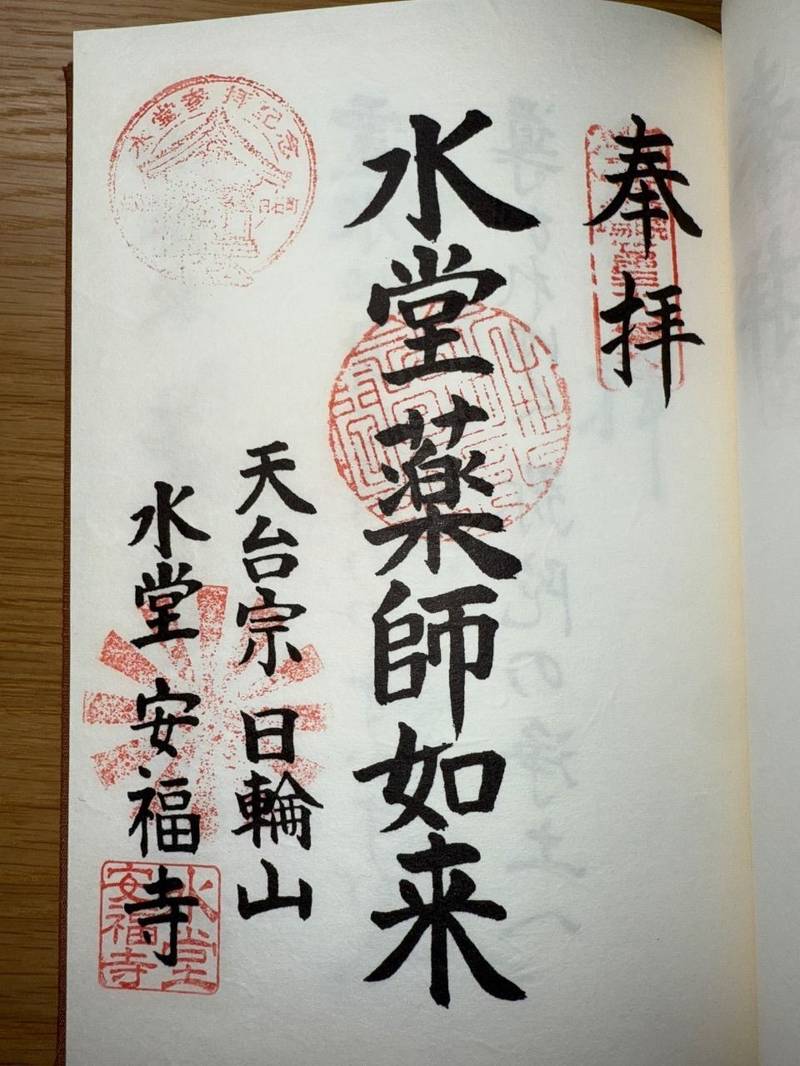 奉拝
水堂薬師如来
天台宗 日輪山
水堂 安福寺
水堂
安福寺